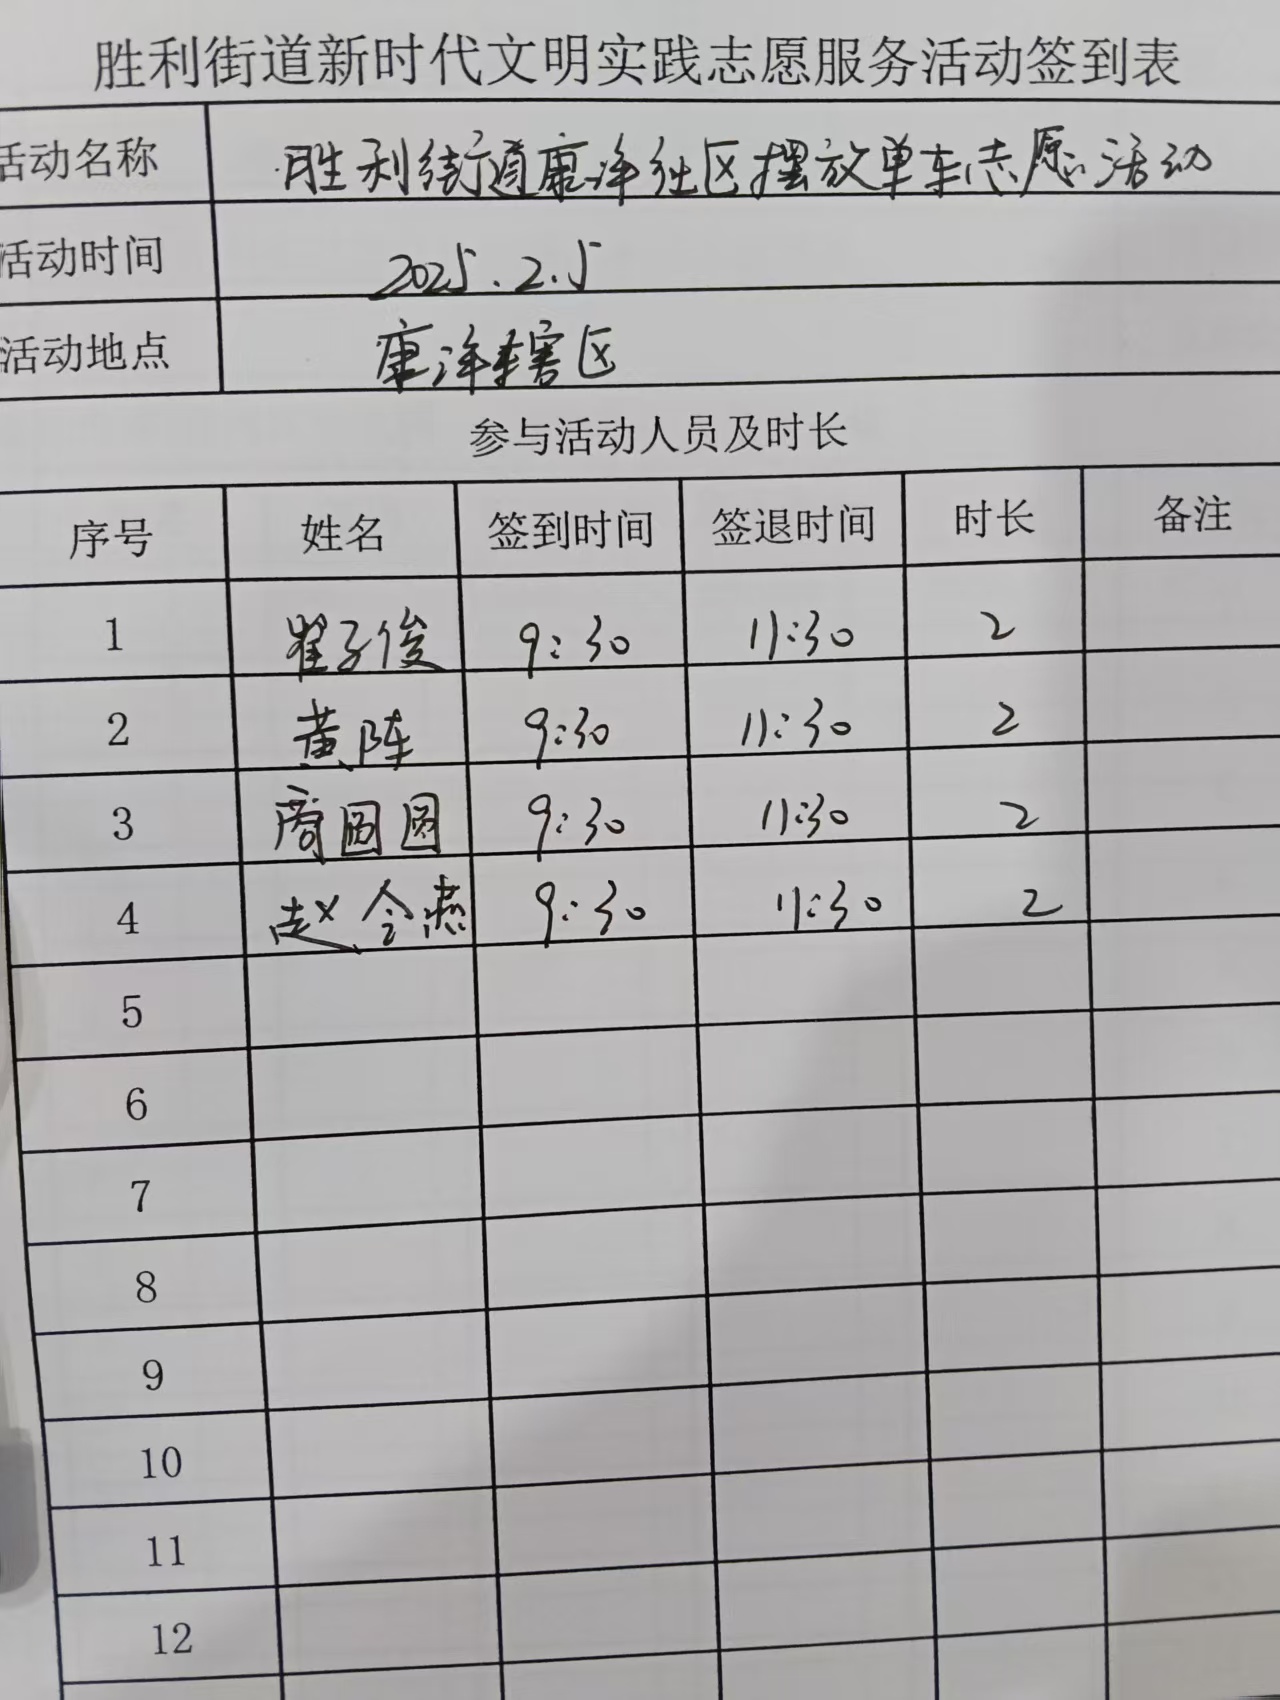 胜利街道新时代文明实践志愿服务活动签到表
活动名称 胜利街道康洋社区摆放单车志愿活动
活动时间 2025.2.5
活动地点 康洋辖区
参与活动人员及时长
序号 姓名 签到时间 签退时间 时长 备注
1 翟子俊 9:30 11:30 2
2 黄阵 9:30 11:30 2
3 商圆圆 9:30 11:30 2
4 赵令 9:30 11:30 2
5
6
7
8
9
10
11
12